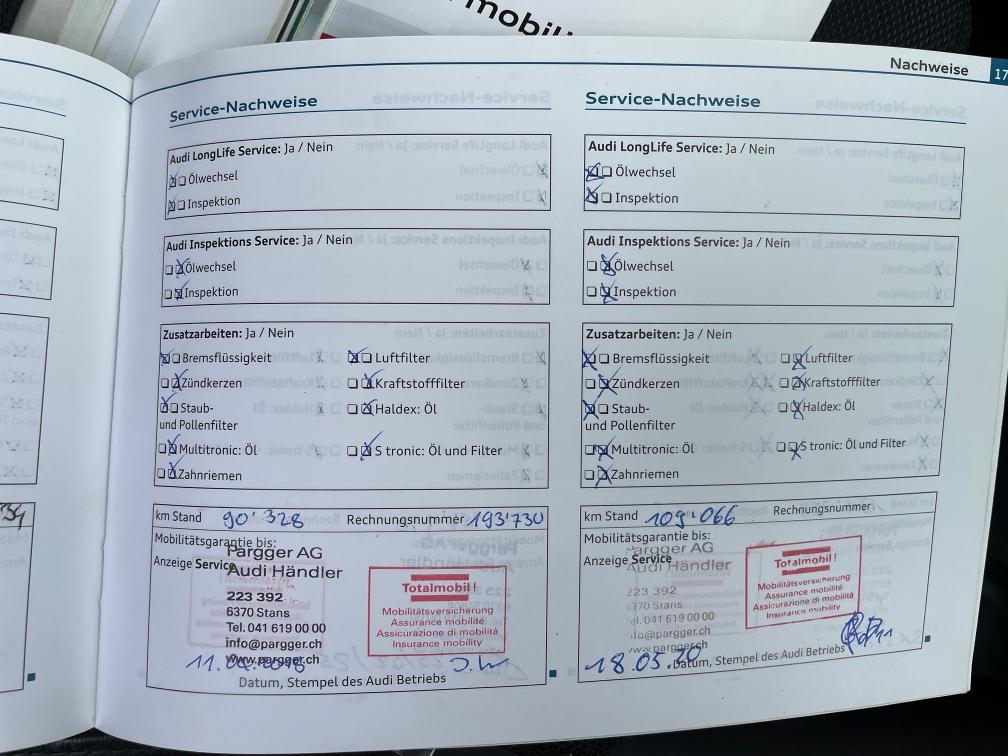 mobil
Nachweise
17
Service-Nachweise
Audi LongLife Service: Ja / Nein
Ölwechsel
Inspektion
Audi Inspektions Service: Ja / Nein
Ölwechsel
Inspektion
Zusatzarbeiten: Ja / Nein
Bremsflüssigkeit Luftfilter
Zündkerzen Kraftstofffilter
Staub- Haldex: Öl
und Pollenfilter
Multitronic: Öl S tronic: Öl und Filter
Zahnriemen
km Stand 90'328 Rechnungsnummer 193'730
Mobilitätsgarantie bis:
Anzeige Service
Pargger AG
Audi Händler
223 392
6370 Stans
Tel. 041 619 00 00
info@pargger.ch
www.pargger.ch
Totalmobil!
Mobilitätsversicherung
Assurance mobilité
Assicurazione di mobilità
Insurance mobility
Datum, Stempel des Audi Betriebs
Service-Nachweise
Audi LongLife Service: Ja / Nein
Ölwechsel
Inspektion
Audi Inspektions Service: Ja / Nein
Ölwechsel
Inspektion
Zusatzarbeiten: Ja / Nein
Bremsflüssigkeit Luftfilter
Zündkerzen Kraftstofffilter
Staub- Haldex: Öl
und Pollenfilter
Multitronic: Öl S tronic: Öl und Filter
Zahnriemen
km Stand 109'066 Rechnungsnummer
Mobilitätsgarantie bis:
Anzeige Service
Pargger AG
Audi Händler
223 392
6370 Stans
Tel. 041 619 00 00
info@pargger.ch
www.pargger.ch
Totalmobil!
Mobilitätsversicherung
Assurance mobilité
Assicurazione di mobilità
Insurance mobility
18.05.20
Datum, Stempel des Audi Betriebs